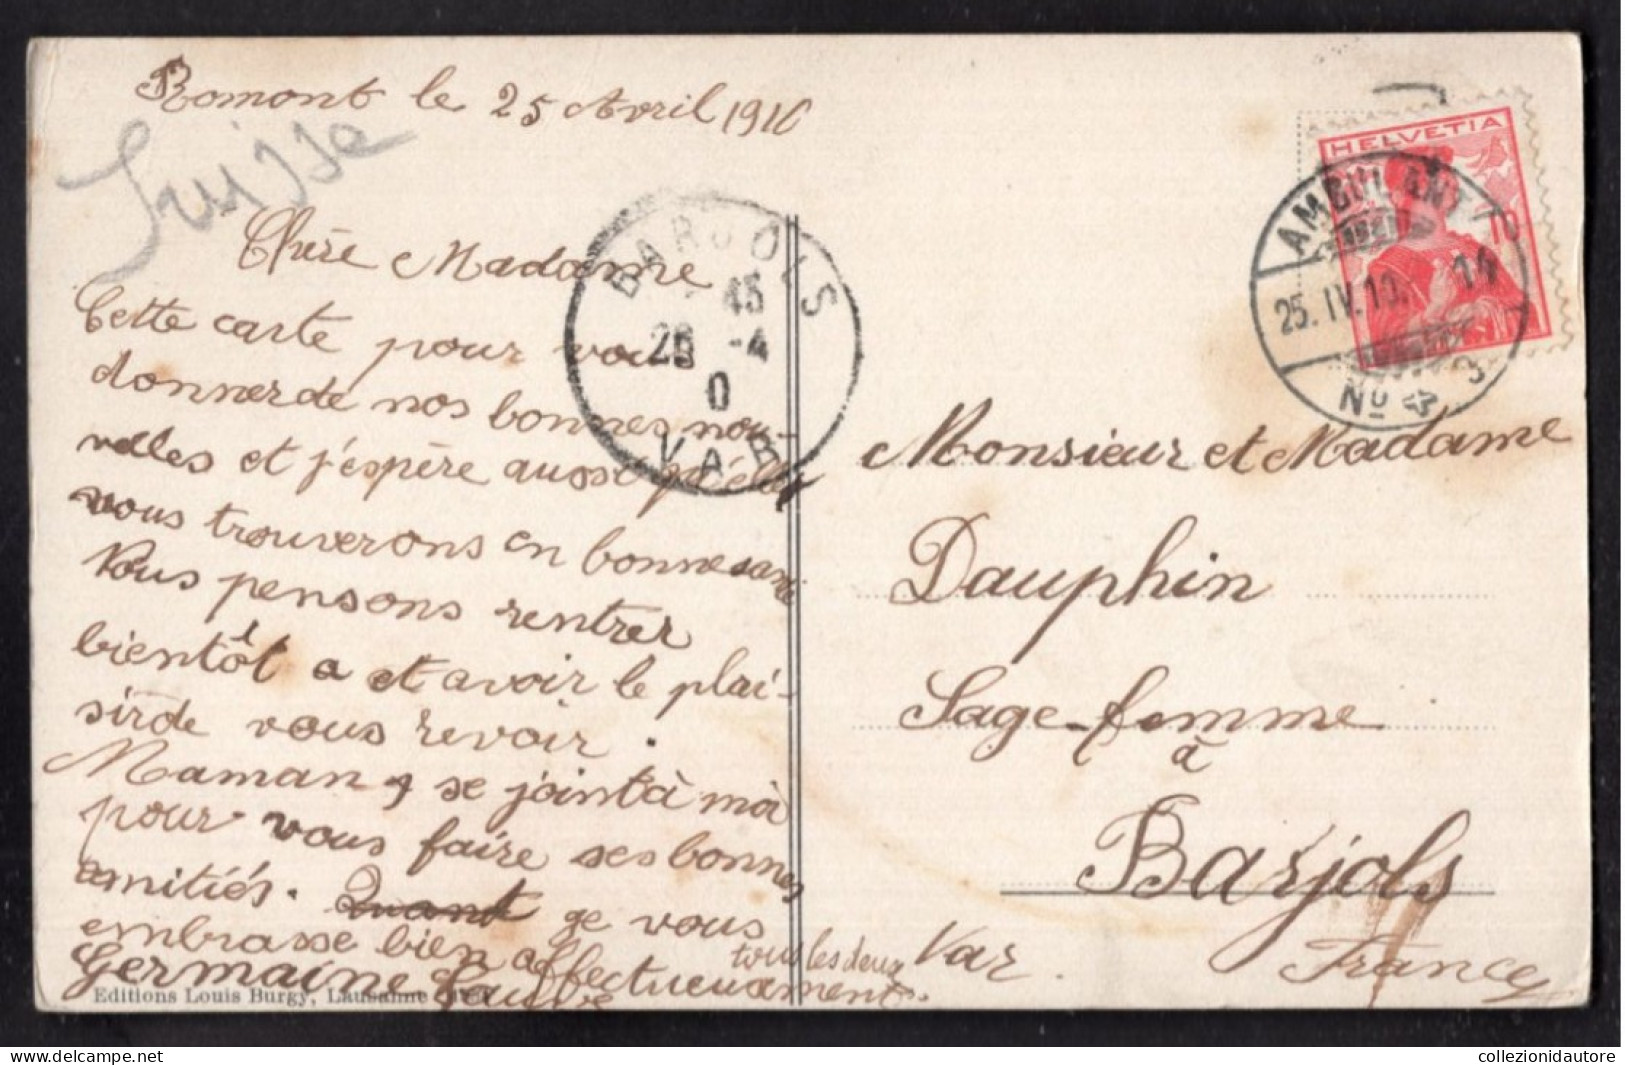 Romont le 25 Avril 1910
Suisse
Chère Madame
Cette carte pour vous
donner de nos bonnes nou-
velles et j'espère aussi qu'elles
vous trouverons en bonne santé
Nous pensons rentrer
bientôt a et avoir le plai-
sir de vous revoir.
Maman se joint à moi
pour vous faire ses bonnes
amitiés. Quant ge vous
embrasse bien affectueusement
tous les deux
Germaine
Editions Louis Burgy, Lausanne
BARJOLS
45
26 -4
0
VAR
HELVETIA
10
AMBULANT
25. IV. 10. 14
No 3
Monsieur et Madame
Dauphin
Sage-femme
à
Barjols
Var.
France
collezionidautore